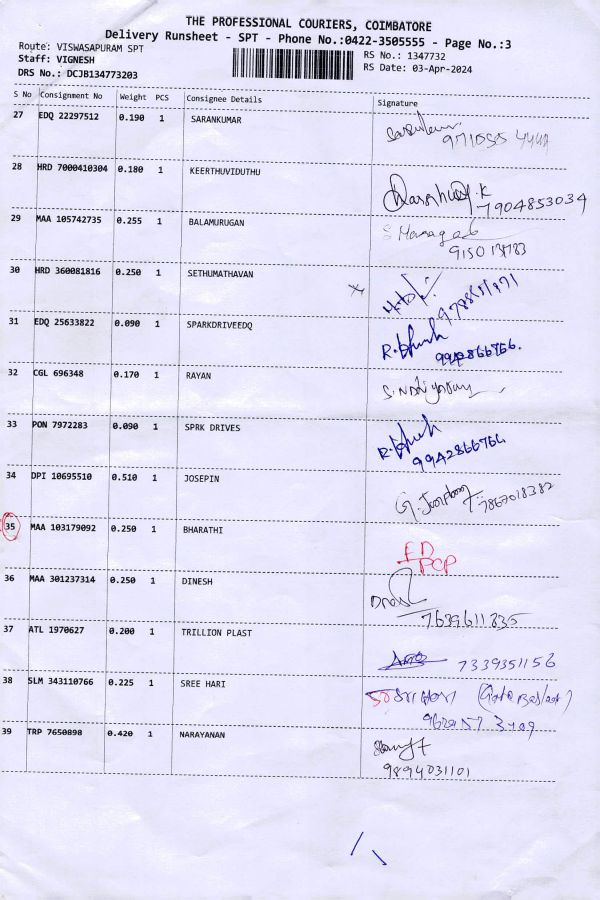 THE PROFESSIONAL COURIERS, COIMBATORE
Delivery Runsheet - SPT - Phone No.:0422-3505555 - Page No.:3
Route: VISWASAPURAM SPT
RS No.: 1347732
Staff: VIGNESH
RS Date: 03-Apr-2024
DRS No.: DCJB134773203
S No Consignment No Weight PCS Consignee Details Signature
27 EDQ 22297512 0.190 1 SARANKUMAR
28 HRD 7000410304 0.180 1 KEERTHUVIDUTHU
7904853034
29 MAA 105742735 0.255 1 BALAMURUGAN
30 HRD 360081816 0.250 1 SETHUMATHAVAN
31 EDQ 25633822 0.090 1 SPARKDRIVEEDQ
9942866766.
32 CGL 696348 0.170 1 RAYAN
33 PON 7972283 0.090 1 SPRK DRIVES
9942866766
34 DPI 10695510 0.510 1 JOSEPIN
7867018382
35 MAA 103179092 0.250 1 BHARATHI
PCP
36 MAA 301237314 0.250 1 DINESH
7639611835
37 ATL 1970627 0.200 1 TRILLION PLAST
7339351156
38 SLM 343110766 0.225 1 SREE HARI
39 TRP 7650898 0.420 1 NARAYANAN
9894031101